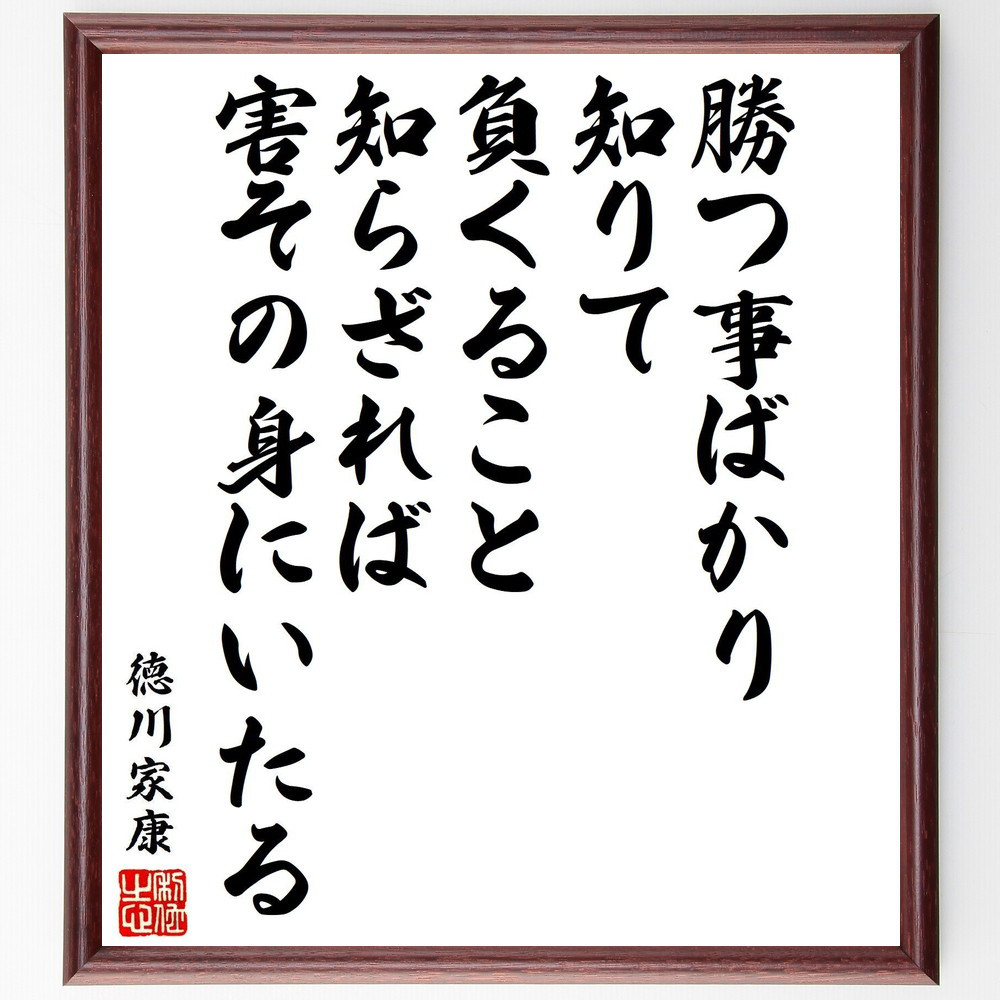 勝つ事ばかり
知りて
負くること
知らざれば
害その身にいたる
徳川家康